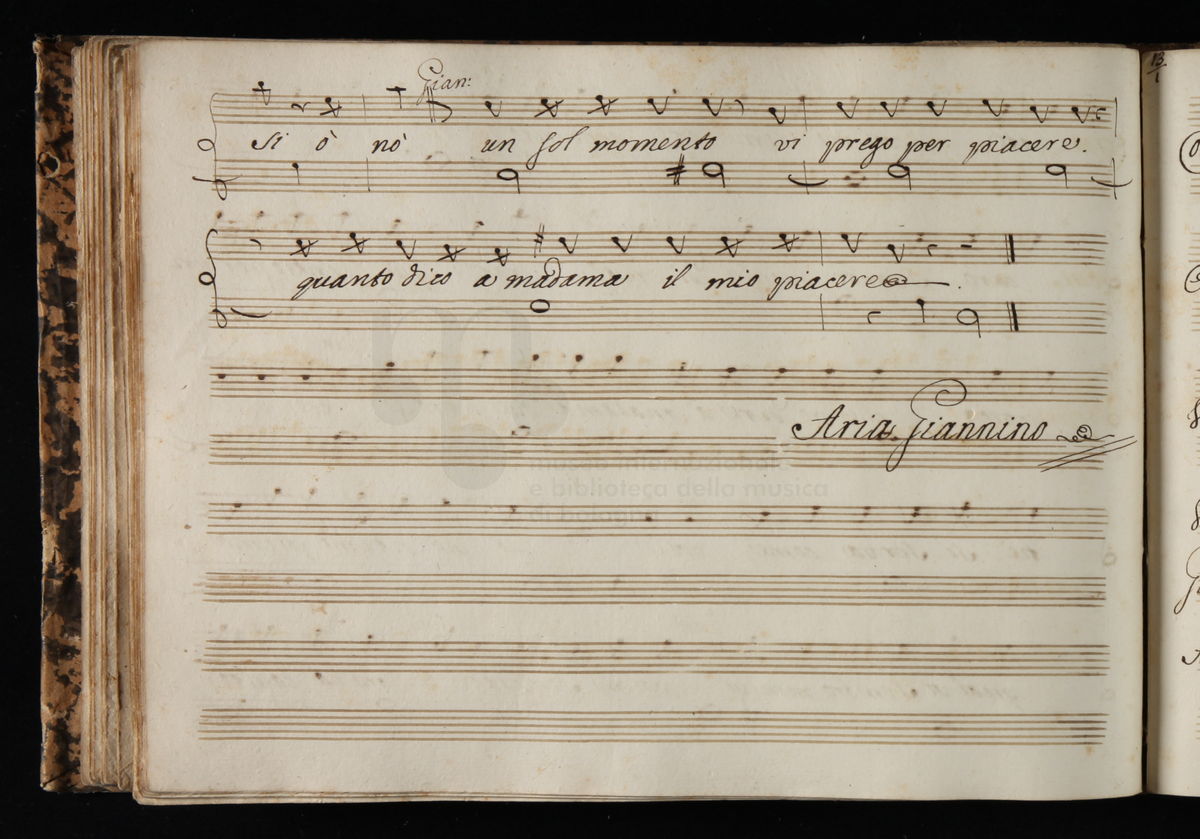 Gian:
13
1
Si ò nò un sol momento vi prego per piacere.
quanto dico a madama il mio piacere.
Aria Giannino
museo internazionale
e biblioteca della musica
di bologna